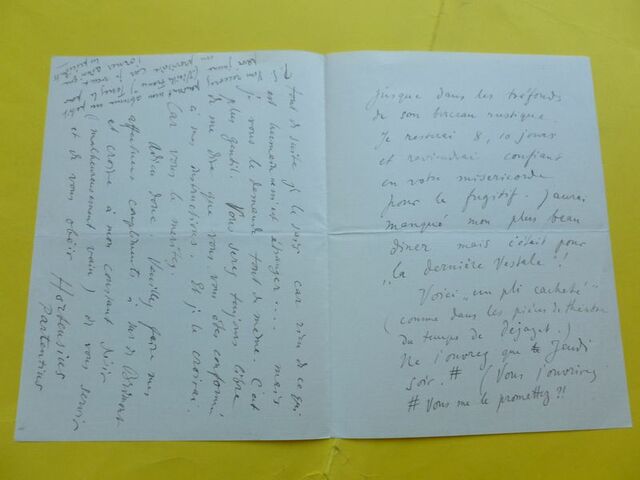 jusque dans les tréfonds
de son bureau rustique.
Je resterai 8, 10 jours
et reviendrai confiant
en votre miséricorde
pour le fugitif. J'aurai
manqué mon plus beau
diner mais c'était pour
"la dernière Vestale"!
Voici "un pli cacheté"
(comme dans les pièces de théatre
du temps de Déjazet.)
Ne l'ouvrez que Jeudi
soir. # (Vous l'ouvririez
# Vous me le promettez?!
tout de suite je le sais car rien de ce qui
est humain ne m'est étranger.... mais
je vous le demande tout de même. C'est
plus gentil. Vous serez toujours libre
de me dire que vous vous êtes conformé
à mes instructions. Et je le croirai.
Car vous le méritez.
Adieu donc Veuillez faire mes
affectueux compliments à
et croire à mon constant désir
(malheureusement vain) de vous servir
et de vous obéir
Hortensius
Partentius